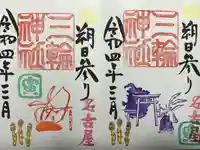 朔日参り
三輪神社
名古屋
令和四年二月
寅
朔日参り
三輪神社
名古屋
令和四年三月
寅